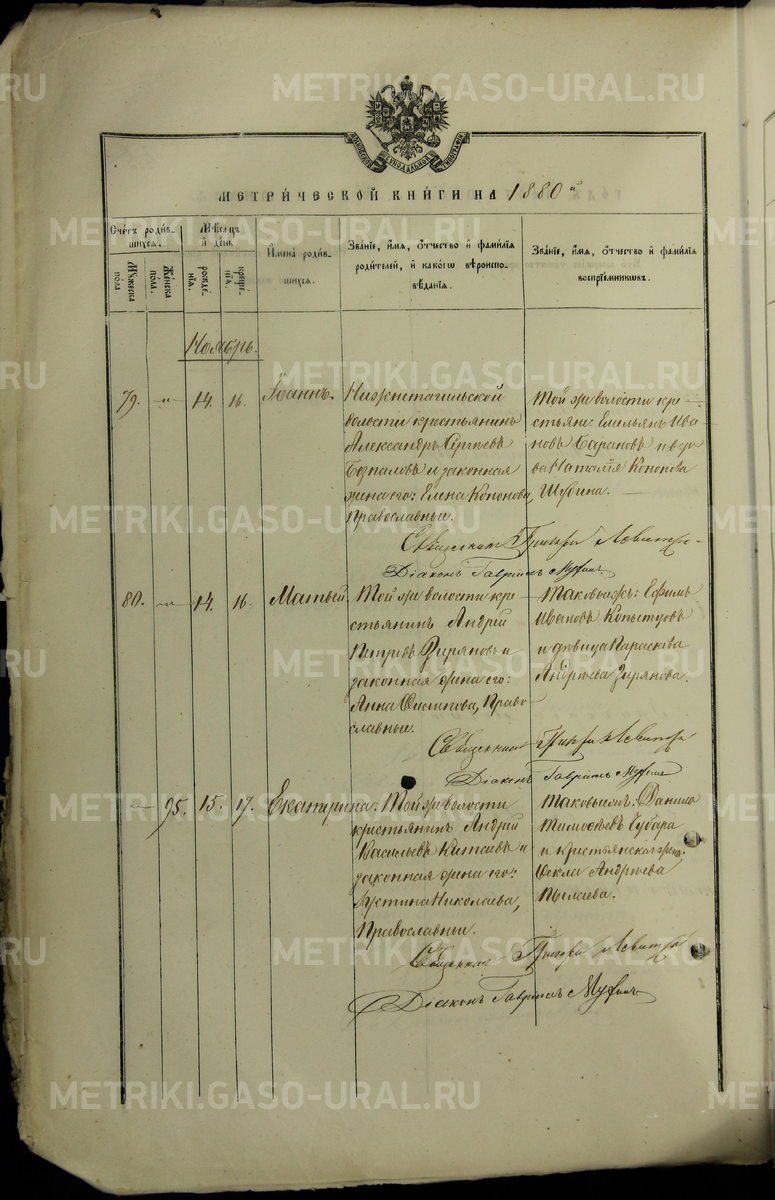 МЕТРИ́ЧЕСКОЙ КНИ́ГИ НА 1880й
Сче́тъ роди́в-
шихся.
Мѣ́сяцъ
и҆ де́нь
Мꙋ́жеска
по́ла
Же́нска
по́ла.
рожде́-
нїѧ.
креще́-
нїѧ.
И҆мена̀ роди́в-
шихся.
Зва́нїе, и҆́мѧ, ѻ҆́тчество и҆ фами́лїѧ
роди́телей, и҆ како́гѡ вѣроиспо-
вѣ́данїѧ.
Зва́нїе, и҆́мѧ, ѻ҆́тчество и҆ фами́лїѧ
воспрїе́мникѡвъ.
Ноябрь.
79. -„- 14. 16. Іоаннъ.
Нижнетагильской
волости крестьянинъ
Александръ Сергѣевъ
Безпаловъ и законная
жена его: Елена Кононова,
Православные.
Той же волости кре-
стьяне: Емельянъ Ива-
новъ Барановъ и вдо-
ва Наталія Кононова
Шубина.
Священникъ Григорій Левитскій
Діаконъ Гавріилъ Мухинъ
80. -„- 14. 16. Матѳей.
Той же волости кре-
стьянинъ Андрей
Петровъ Зиряновъ и
законная жена его:
Анна Осипова, Право-
славные.
Таковыежъ: Ефимъ
Ивановъ Копытовъ
и дѣвица Параскева
Андреева Зирянова.
Священникъ Григорій Левитскій
Діаконъ Гавріилъ Мухинъ
-„- 95. 15. 17. Екатерина.
Той же волости
крестьянинъ Андрей
Васильевъ Китаевъ и
законная жена его:
Устина Николаева,
Православные.
Таковыежъ: Данило
Тимоѳеевъ Губара
и крестьянская жена
Ѳекла Андреева
Пылаева.
Священникъ Григорій Левитскій
Діаконъ Гавріилъ Мухинъ
METRIKI.GASO-URAL.RU